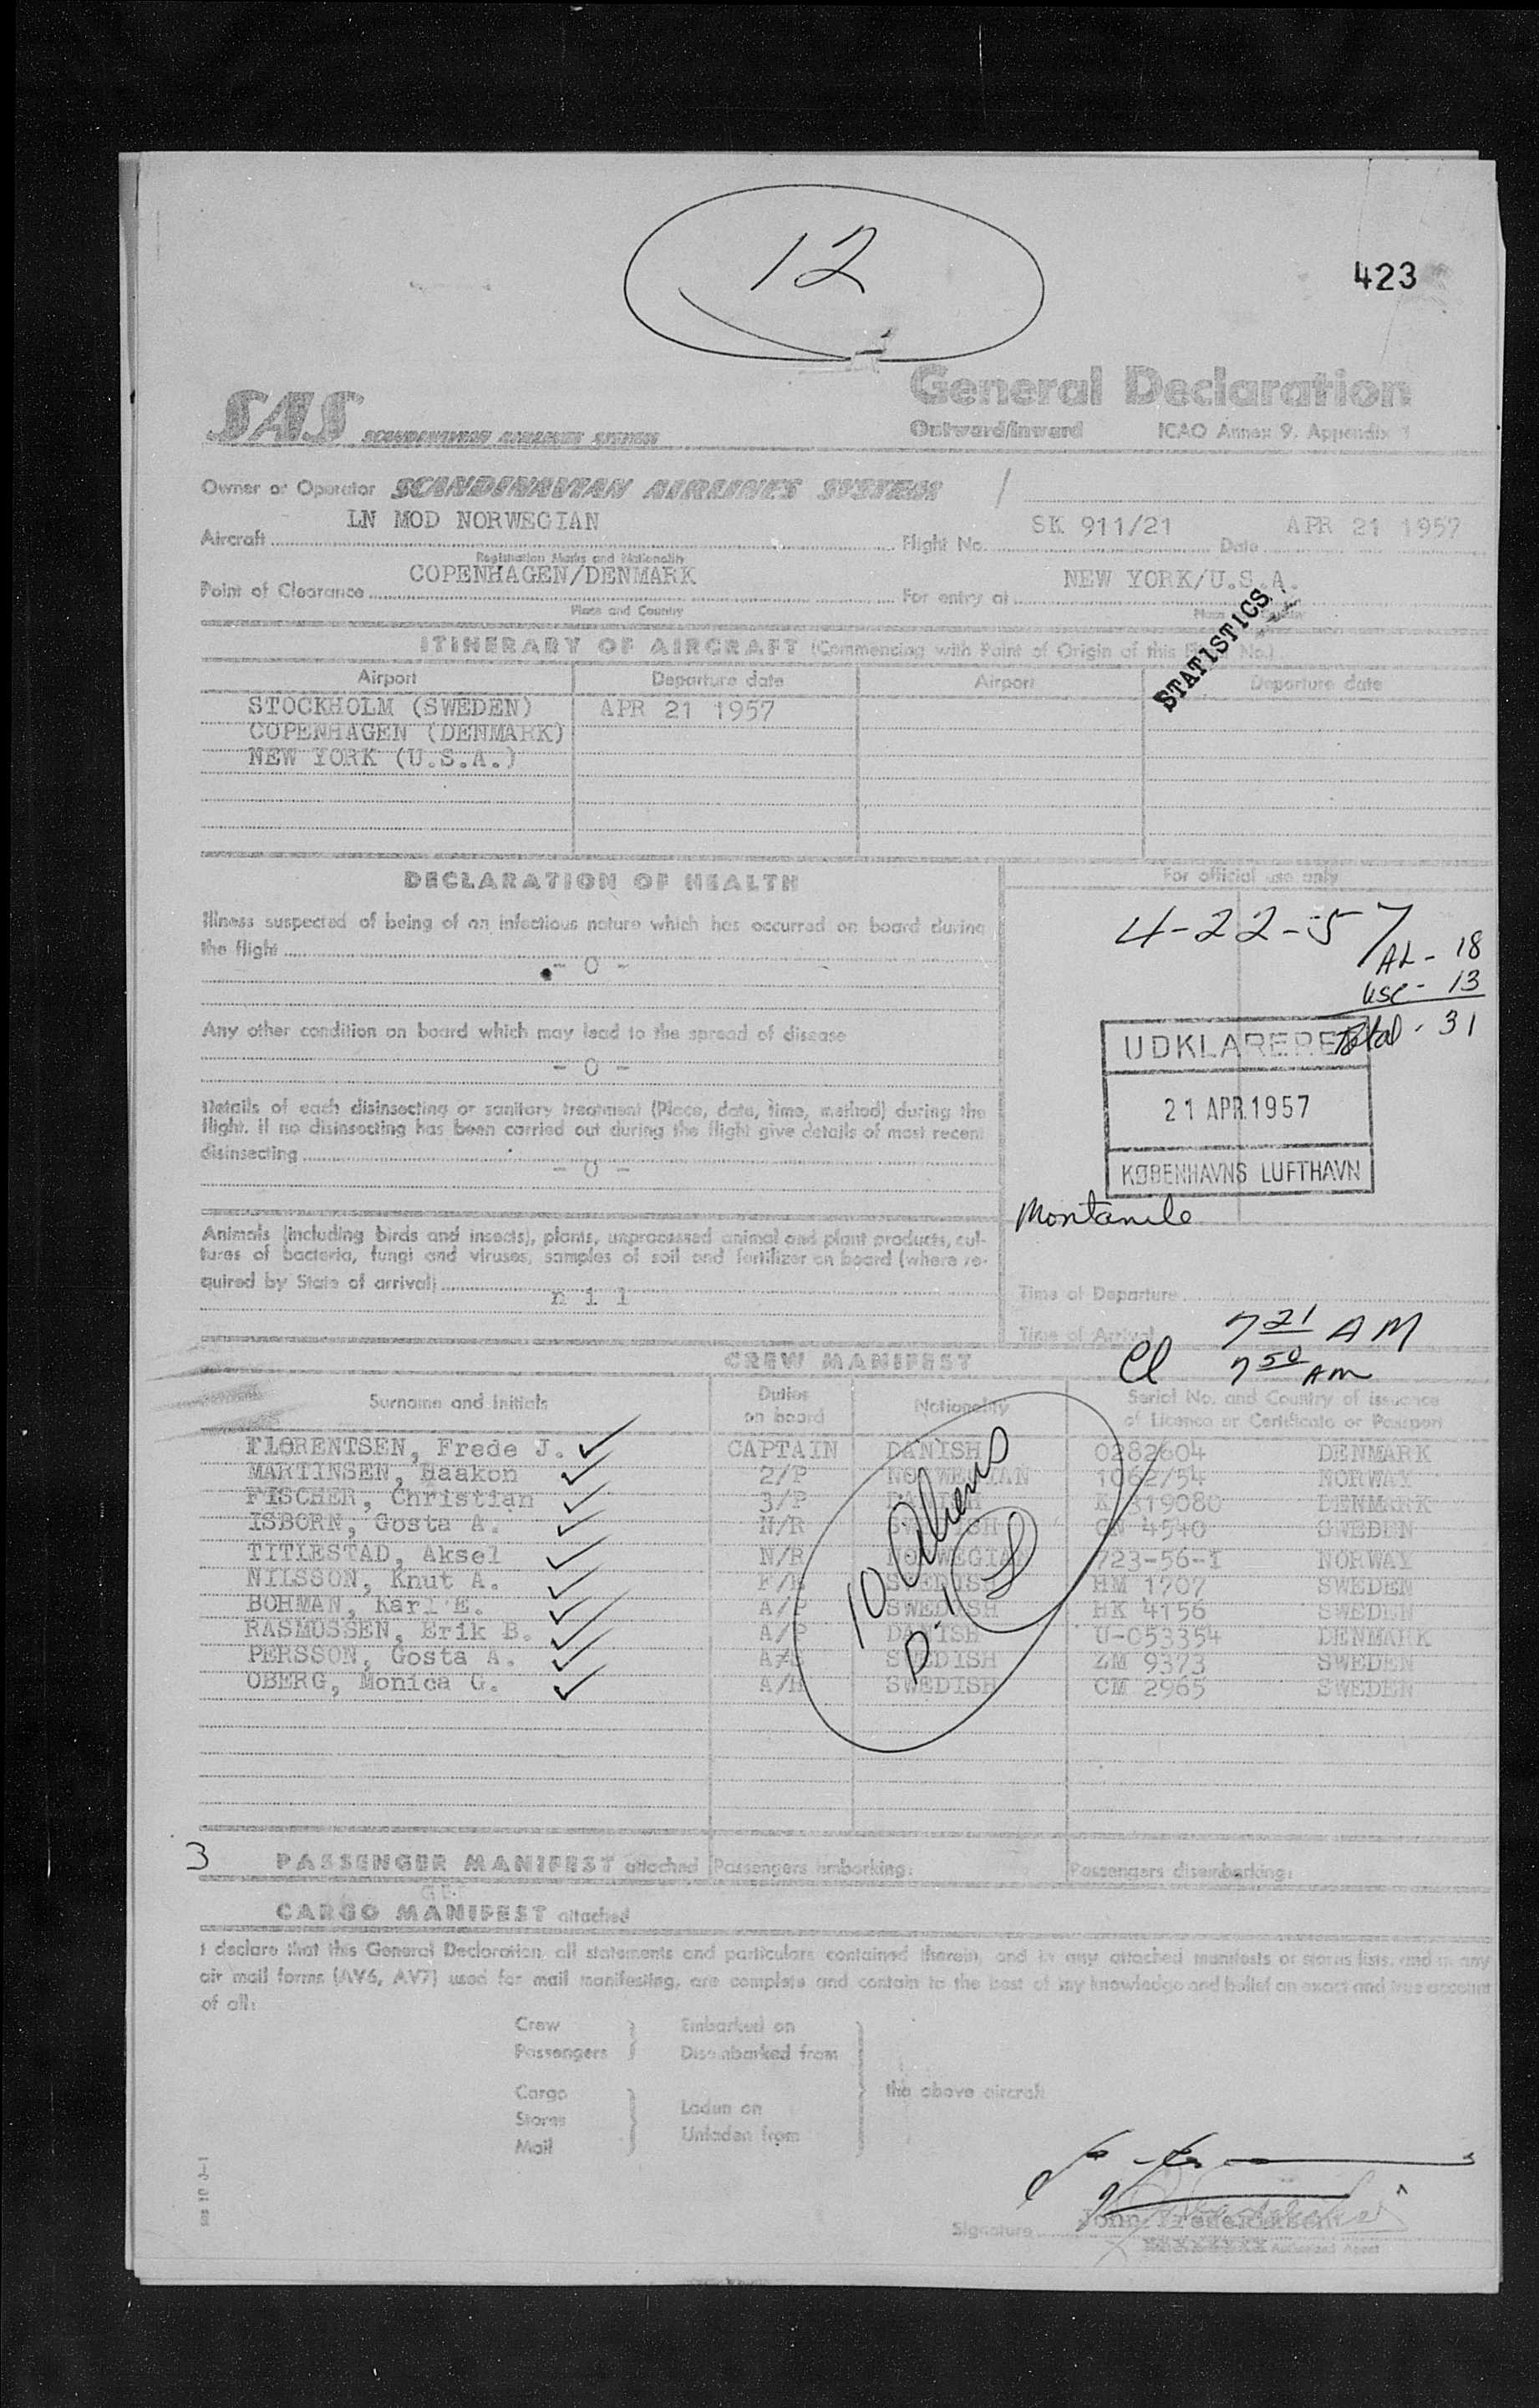 12
423
SAS SCANDINAVIAN AIRLINES SYSTEM
General Declaration
Outward/Inward ICAO Annex 9, Appendix 1
Owner or Operator SCANDINAVIAN AIRLINES SYSTEM
Aircraft LN MOD NORWEGIAN Flight No. SK 911/21 Date APR 21 1957
Registration Marks and Nationality
Point of Clearance COPENHAGEN/DENMARK For entry at NEW YORK/U.S.A.
Place and Country
STATISTICS
ITINERARY OF AIRCRAFT (Commencing with Point of Origin of this No.)
Airport Departure date Airport Departure date
STOCKHOLM (SWEDEN) APR 21 1957
COPENHAGEN (DENMARK)
NEW YORK (U.S.A.)
DECLARATION OF HEALTH
For official use only
Illness suspected of being of an infectious nature which has occurred on board during
the flight
- 0 -
4-22-57
AL - 18
USC - 13
Total - 31
Any other condition on board which may lead to the spread of disease
- 0 -
UDKLARERET
21 APR. 1957
KØBENHAVNS LUFTHAVN
Details of each disinsecting or sanitary treatment (Place, date, time, method) during the
flight. If no disinsecting has been carried out during the flight give details of most recent
disinsecting
- 0 -
Animals (including birds and insects), plants, unprocessed animal and plant products, cul-
tures of bacteria, fungi and viruses, samples of soil and fertilizer on board (where re-
quired by State of arrival)
n i l
Time of Departure
Time of Arrival 7 21 AM
Cl 7 50 AM
CREW MANIFEST
Surname and Initials Duties on board Nationality Serial No. and Country of issuance of Licence or Certificate or Passport
FLORENTSEN, Frede J. CAPTAIN DANISH 0282604 DENMARK
MARTINSEN, Haakon 2/P NORWEGIAN 1062/54 NORWAY
FISCHER, Christian 3/P DANISH K 319080 DENMARK
ISBORN, Gosta A. N/R SWEDISH CN 4540 SWEDEN
TITLESTAD, Aksel N/R NORWEGIAN 723-56-1 NORWAY
NILSSON, Knut A. F/E SWEDISH HM 1707 SWEDEN
BOHMAN, Karl E. A/P SWEDISH HK 4156 SWEDEN
RASMUSSEN, Erik B. A/P DANISH U-053354 DENMARK
PERSSON, Gosta A. SWEDISH ZM 9373 SWEDEN
OBERG, Monica G. A/H SWEDISH CM 2965 SWEDEN
10 Aliens
3
PASSENGER MANIFEST attached Passengers embarking: Passengers disembarking:
CARGO MANIFEST attached
I declare that this General Declaration, all statements and particulars contained therein, and in any attached manifests or stores lists, and in any
air mail forms (AV6, AV7) used for mail manifesting, are complete and contain to the best of my knowledge and belief an exact and true account
of all:
Crew Embarked on
Passengers Disembarked from
Cargo the above aircraft
Stores Laden on
Mail Unladen from
Signature John Frederiksen
Authorized Agent